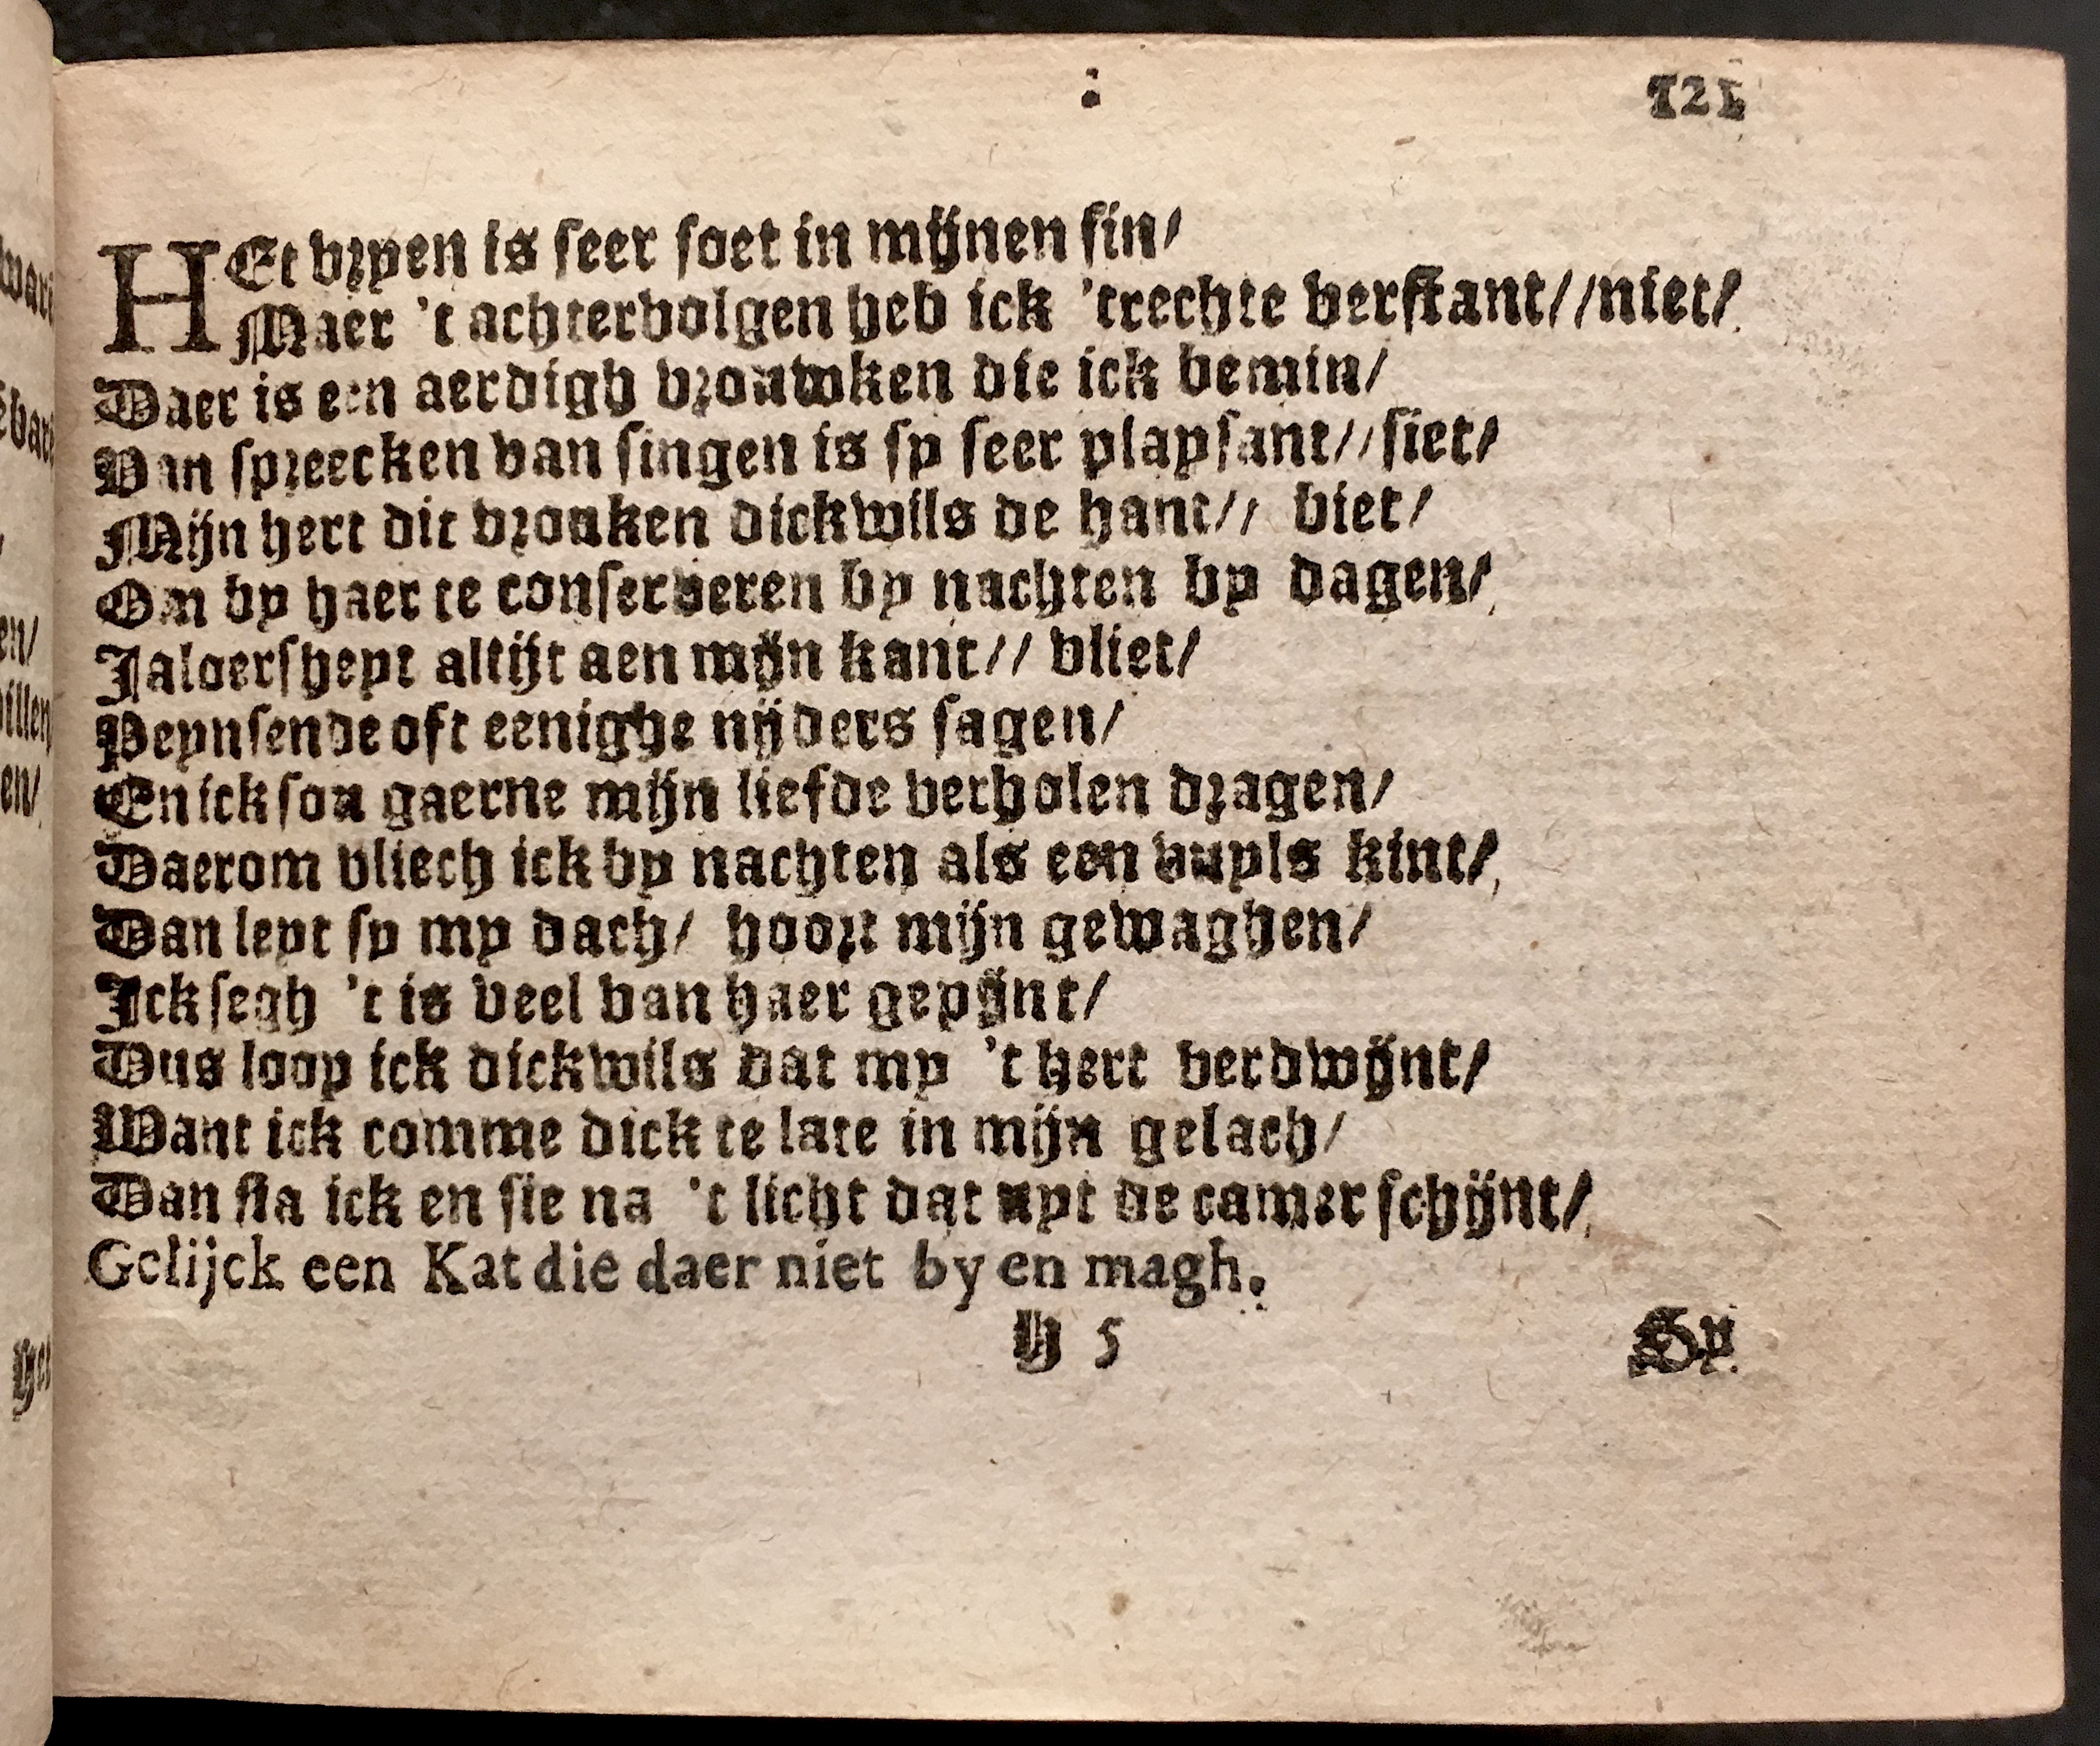 : 121
HEt vryen is seer soet in mijnen sin/
Maer 't achtervolgen heb ick 'trechte verstant//niet/
Daer is een aerdigh vrouwken die ick bemin/
Van spreecken van singen is sy seer playsant//siet/
Mijn hert dit vrouken dickwils de hant// biet/
Om by haer te conserveren by nachten by dagen/
Jaloersheyt altijt aen mijn kant// vliet/
Peynsende oft eenighe nijders sagen/
En ick sou gaerne mijn liefde verholen dragen/
Daerom vliech ick by nachten als een vuyls kint/
Dan leyt sy my dach/ hoort mijn gewaghen/
Ick segh 't is veel van haer gepijnt/
Dus loop ick dickwils dat my 't hert verdwijnt/
Want ick comme dick te late in mijn gelach/
Dan sta ick en sie na 't licht dat uyt de camer schijnt/
Gelijck een Kat die daer niet by en magh.
H 5 Sy